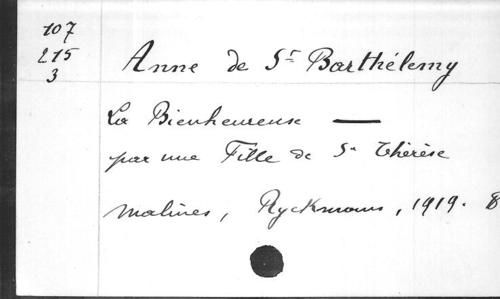 107
215
3
Anne de St Barthélemy
La Bienheureuse —
par une Fille de Se Thérèse
Malines, Ryckmans, 1919. 8